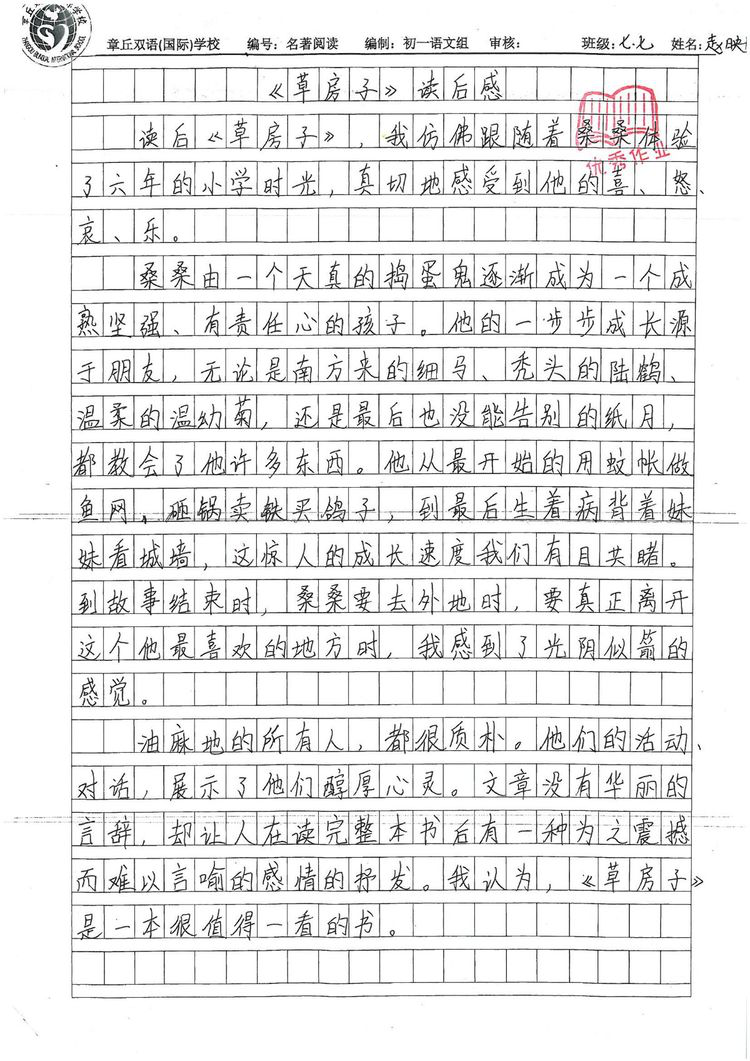 章丘双语(国际)学校 编号：名著阅读 编制：初一语文组 审核： 班级：七.七 姓名：赵映
《草房子》读后感
读后《草房子》，我仿佛跟随着桑桑体验
优秀作业
了六年的小学时光，真切地感受到他的喜、怒、
哀、乐。
桑桑由一个天真的捣蛋鬼逐渐成为一个成
熟坚强、有责任心的孩子。他的一步步成长源
于朋友，无论是南方来的细马、秃头的陆鹤、
温柔的温幼菊，还是最后也没能告别的纸月，
都教会了他许多东西。他从最开始的用蚊帐做
鱼网，砸锅卖铁买鸽子，到最后生着病背着妹
妹看城墙，这惊人的成长速度我们有目共睹。
到故事结束时，桑桑要去外地时，要真正离开
这个他最喜欢的地方时，我感到了光阴似箭的
感觉。
油麻地的所有人，都很质朴。他们的活动、
对话，展示了他们醇厚心灵。文章没有华丽的
言辞，却让人在读完整本书后有一种为之震撼
而难以言喻的感情的抒发。我认为，《草房子》
是一本很值得一看的书。